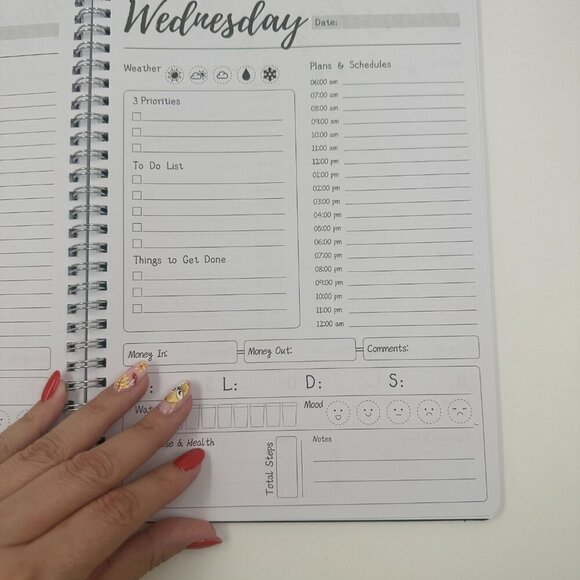 Wednesday
Date:
Weather
Plans & Schedules
3 Priorities
To Do List
Things to Get Done
06:00 am
07:00 am
08:00 am
09:00 am
10:00 am
11:00 am
12:00 pm
01:00 pm
02:00 pm
03:00 pm
04:00 pm
05:00 pm
06:00 pm
07:00 pm
08:00 pm
09:00 pm
10:00 pm
11:00 pm
12:00 am
Money In:
Money Out:
Comments:
: L: D: S:
Mood
& Health
Total Steps
Notes